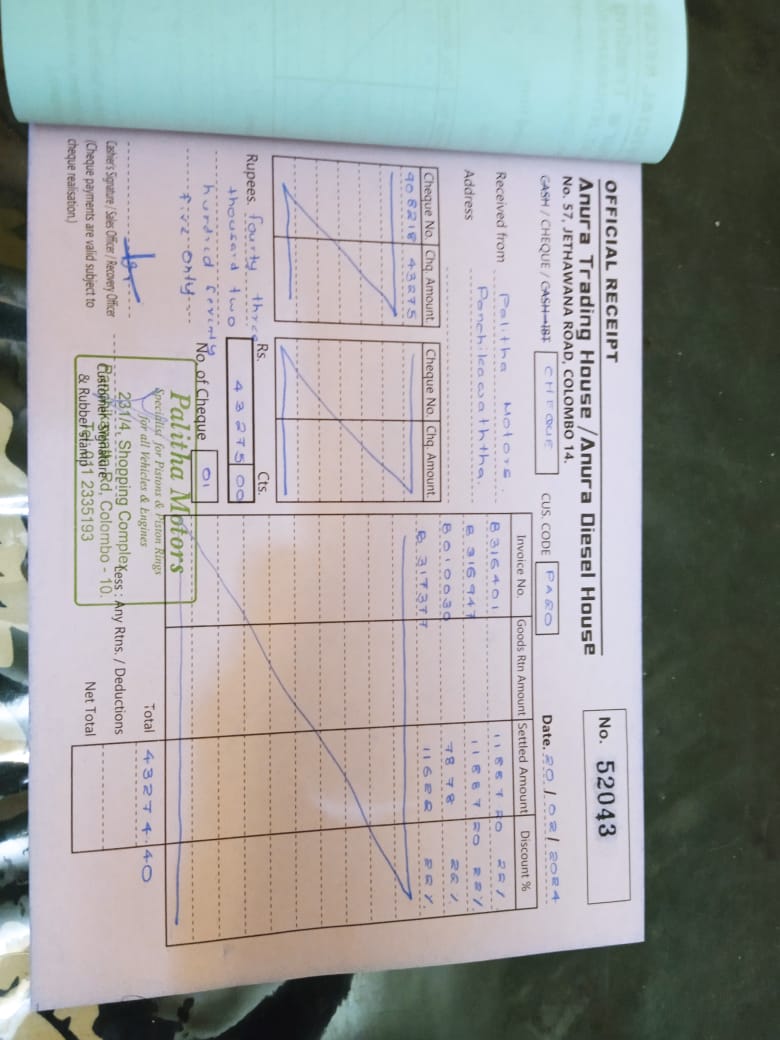 OFFICIAL RECEIPT
No. 52043
Anura Trading House / Anura Diesel House
No. 57, JETHAWANA ROAD, COLOMBO 14.
CASH / CHEQUE / CASH-IBT CHEQUE CUS. CODE PA20 Date. 20 / 02 / 2024
Received from Palitha Motors.
Address Panchikawaththa.
Invoice No. Goods Rtn Amount Settled Amount Discount %
B316401 11887 20 22%
B 316947 11887 20 22%
B010030 7878 22%
B 317377 11622 22%
Cheque No. Chq. Amount. Cheque No. Chq. Amount.
908218 43275
Rs. Cts.
Rupees. fourty three
thousand two
hundred seventy
five only
43275 00
No. of Cheque 01
Total 43274.40
Less : Any Rtns. / Deductions
Net Total
Palitha Motors
Specialist for Pistons & Piston Rings
for all Vehicles & Engines
231/4, Shopping Complex,
Rd, Colombo - 10.
011 2335193
Customer Signature
& Rubber stamp
Cashier's Signature / Sales Officer / Recovery Officer
(Cheque payments are valid subject to
cheque realisation.)